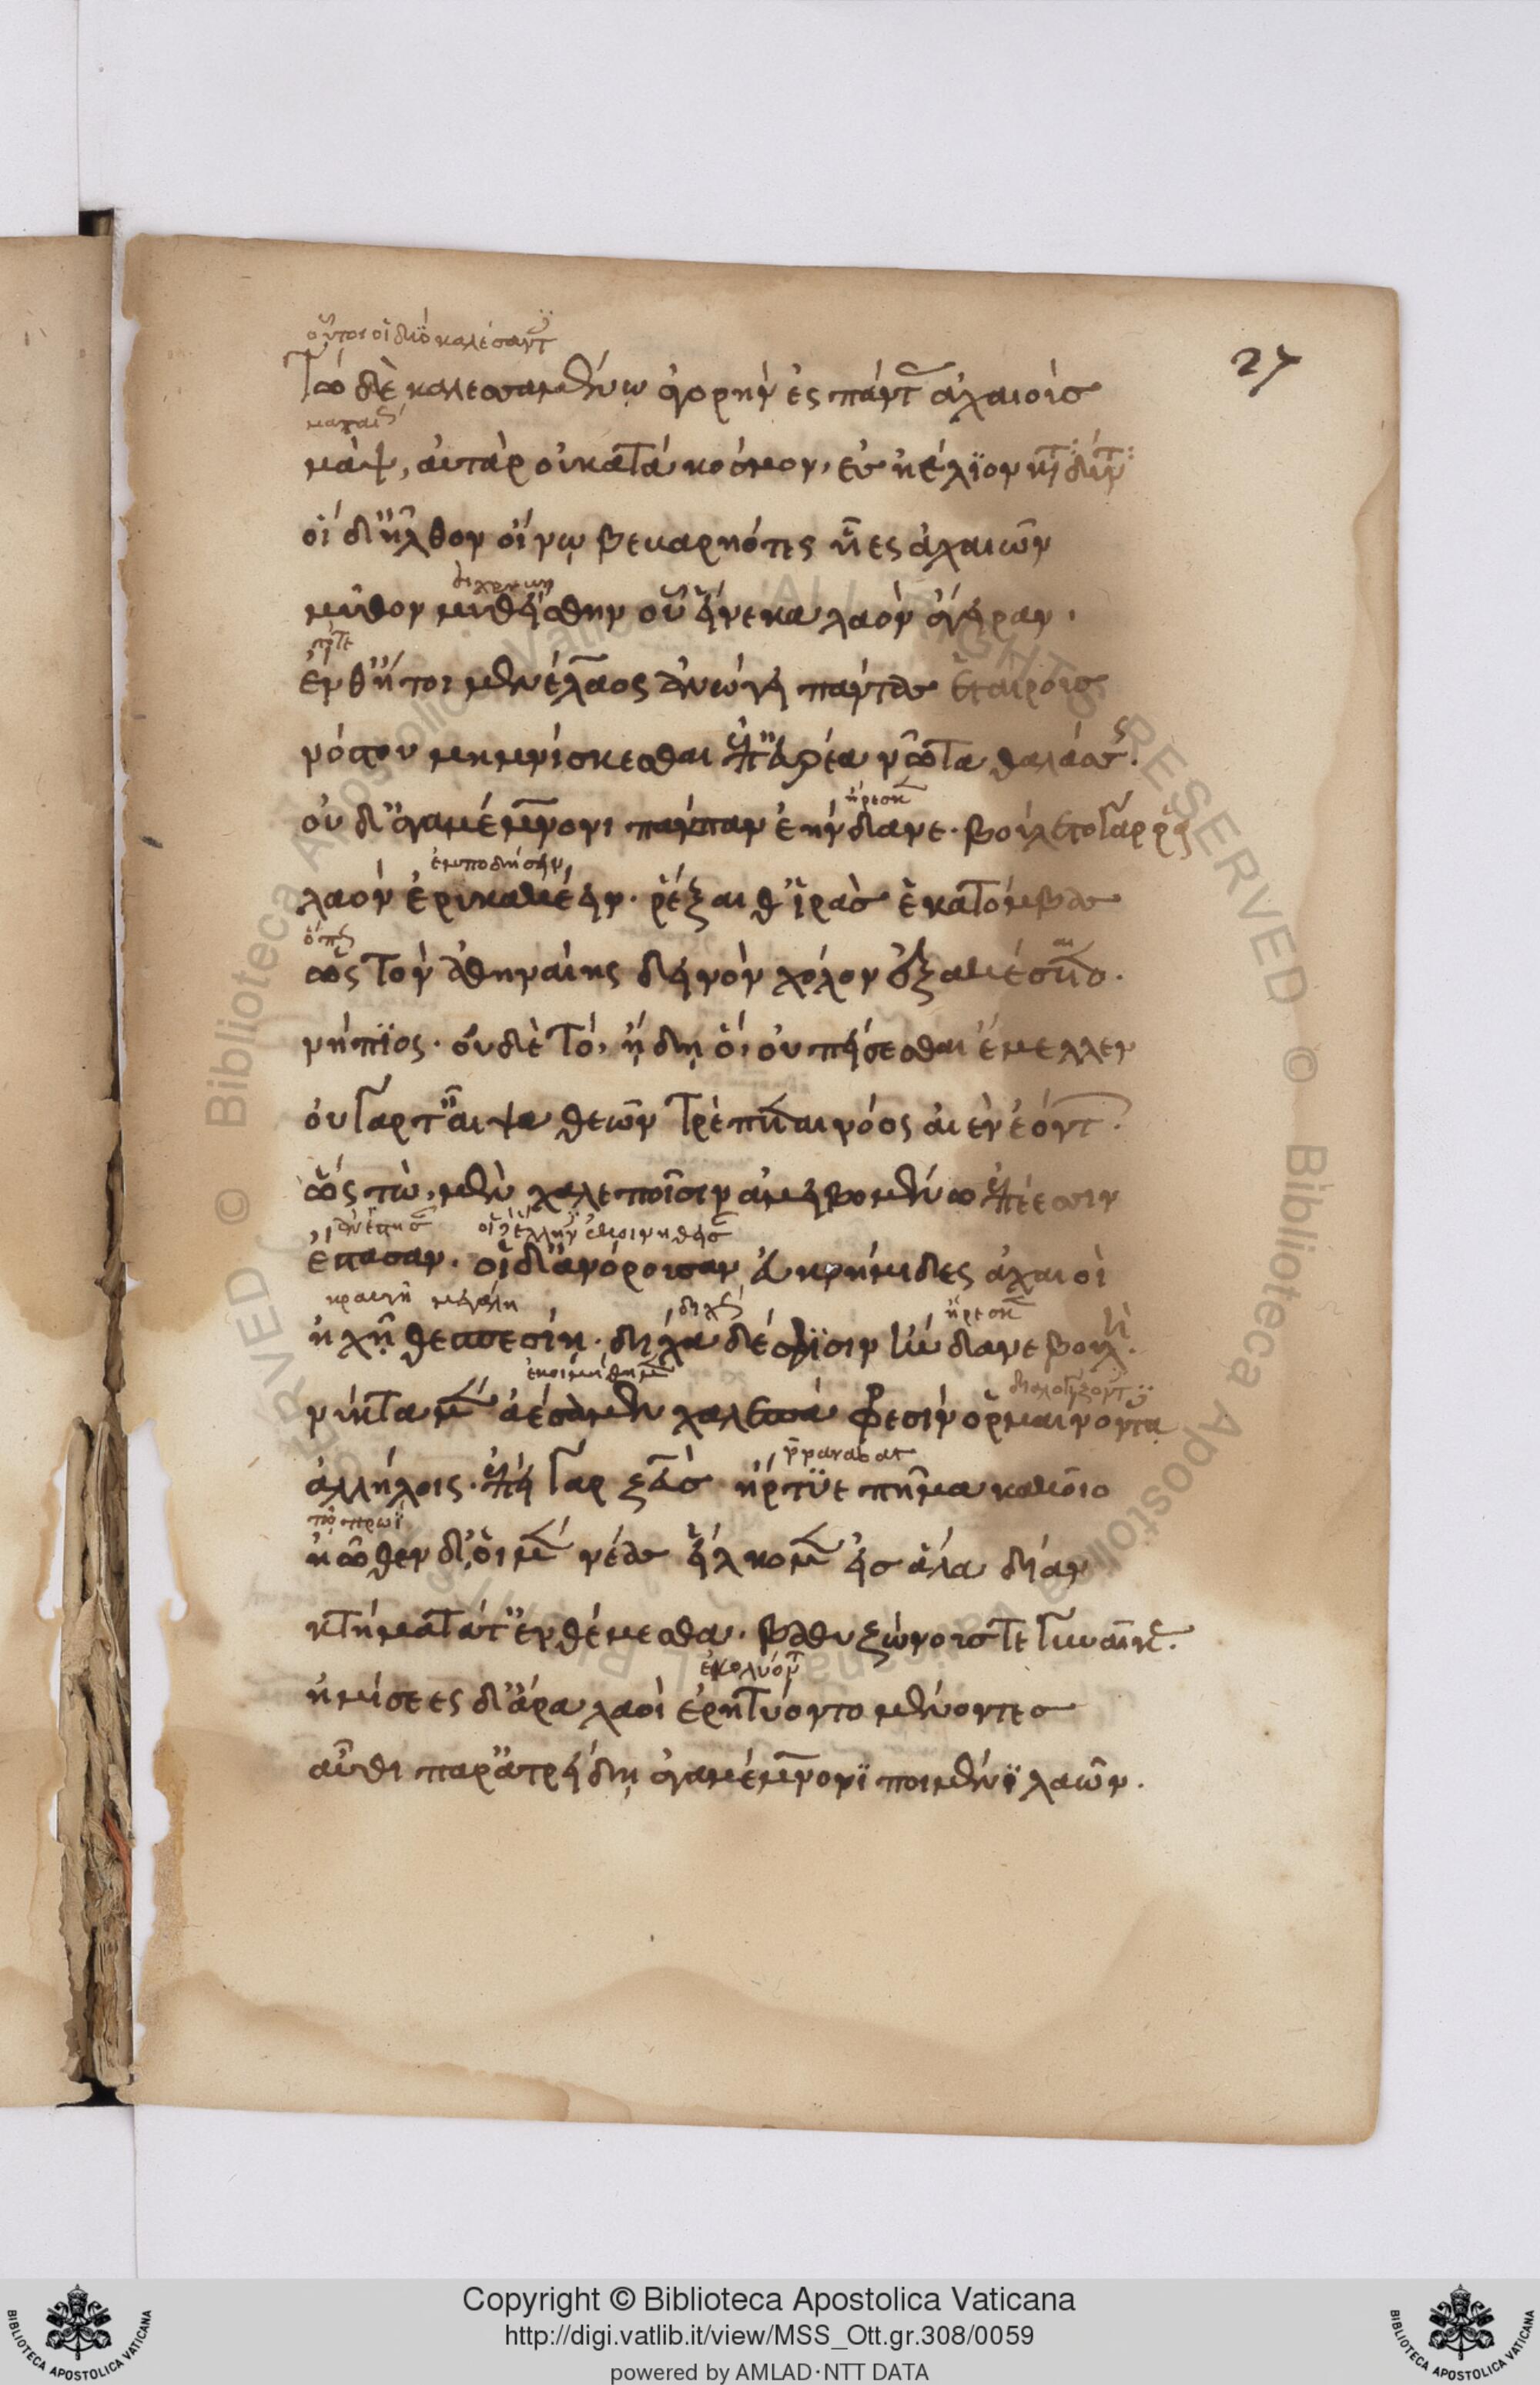 οὗτοι οἱ δύο καλέσαντες
27
Τὼ δὲ καλεσσαμένω ἀγορὴν ἐς πάντας ἀχαιοὺσ
ματαίως
μὰψ, ἀυτὰρ οὐκατά κόσμον, ἐσ ἠέλϊον καταδύντα
οἱ δ' ἦλθον οἴνῳ βεβαρηότες υἷες ἀχαιῶν
μῦθον μυθείσθην οὗ εἵνεκα λαὸν ἄγειραν.
τότε
ἔνθ' ἤτοι μενέλαος ἀνώγει πάντας ἑταίρους
νόστου μιμνήσκεσθαι ἐπ' εὐρέα νῶτα θαλάσσης.
ἤρεσκε
οὐ δ' ἀγαμέμνονι πάμπαν ἑήνδανε. βούλετο γάρ ῥα
ἐμποδίσειν
λαὸν ἐρυκακέειν. ῥέξαι θ' ἱερὰσ ἑκατόμβας
ὅπως
ὡς τὸν ἀθηναίης δεινὸν χόλον ἐξακέσαιτο.
νήπϊος. οὐδὲ τό, ἤδη ὅ, οὐ πείσεσθαι ἔμελλεν
οὐ γάρ τ' αἶψα θεῶν τρέπεται νόος ἀιὲν ἐόντων.
ὣς τὼ, μὲν χαλεποῖσιν ἀμειβομένω ἐπέεσσιν
ἕστασαν. οἱ δ' ἀνόρουσαν ἐυκνήμιδες ἀχαιοὶ
κραυγῆ μεγάλη
ἤρεσκε
ἠχῆ θεσπεσίη. δίχα δέ σφϊσιν ἥνδανε βουλή.
ἐκοιμήθημεν
νύκτα μὲν ἀέσαμεν χαλεπὰ φρεσὶν ὁρμαίνοντες
ἀλλήλοις. ἐπὶ γὰρ ζεὺσ ἤρτϋε πῆμα κακοῖο
τὸ πρωῒ
ἠῶθεν δ' οἱ μὲν νέας εἵλκομεν εἰσ ἅλα δῖαν
κτήματά τ' ἐντιθέμεσθα. βαθυζώνουσ τε γυναῖκας.
ἐκωλύοντο
ἡμίσεες δ' ἄρα λαοὶ ἐρητύοντο μένοντεσ
αὖθι παρ' ἀτρείδη ἀγαμέμνονϊ ποιμένϊ λαῶν.
Copyright © Biblioteca Apostolica Vaticana
http://digi.vatlib.it/view/MSS_Ott.gr.308/0059
powered by AMLAD·NTT DATA